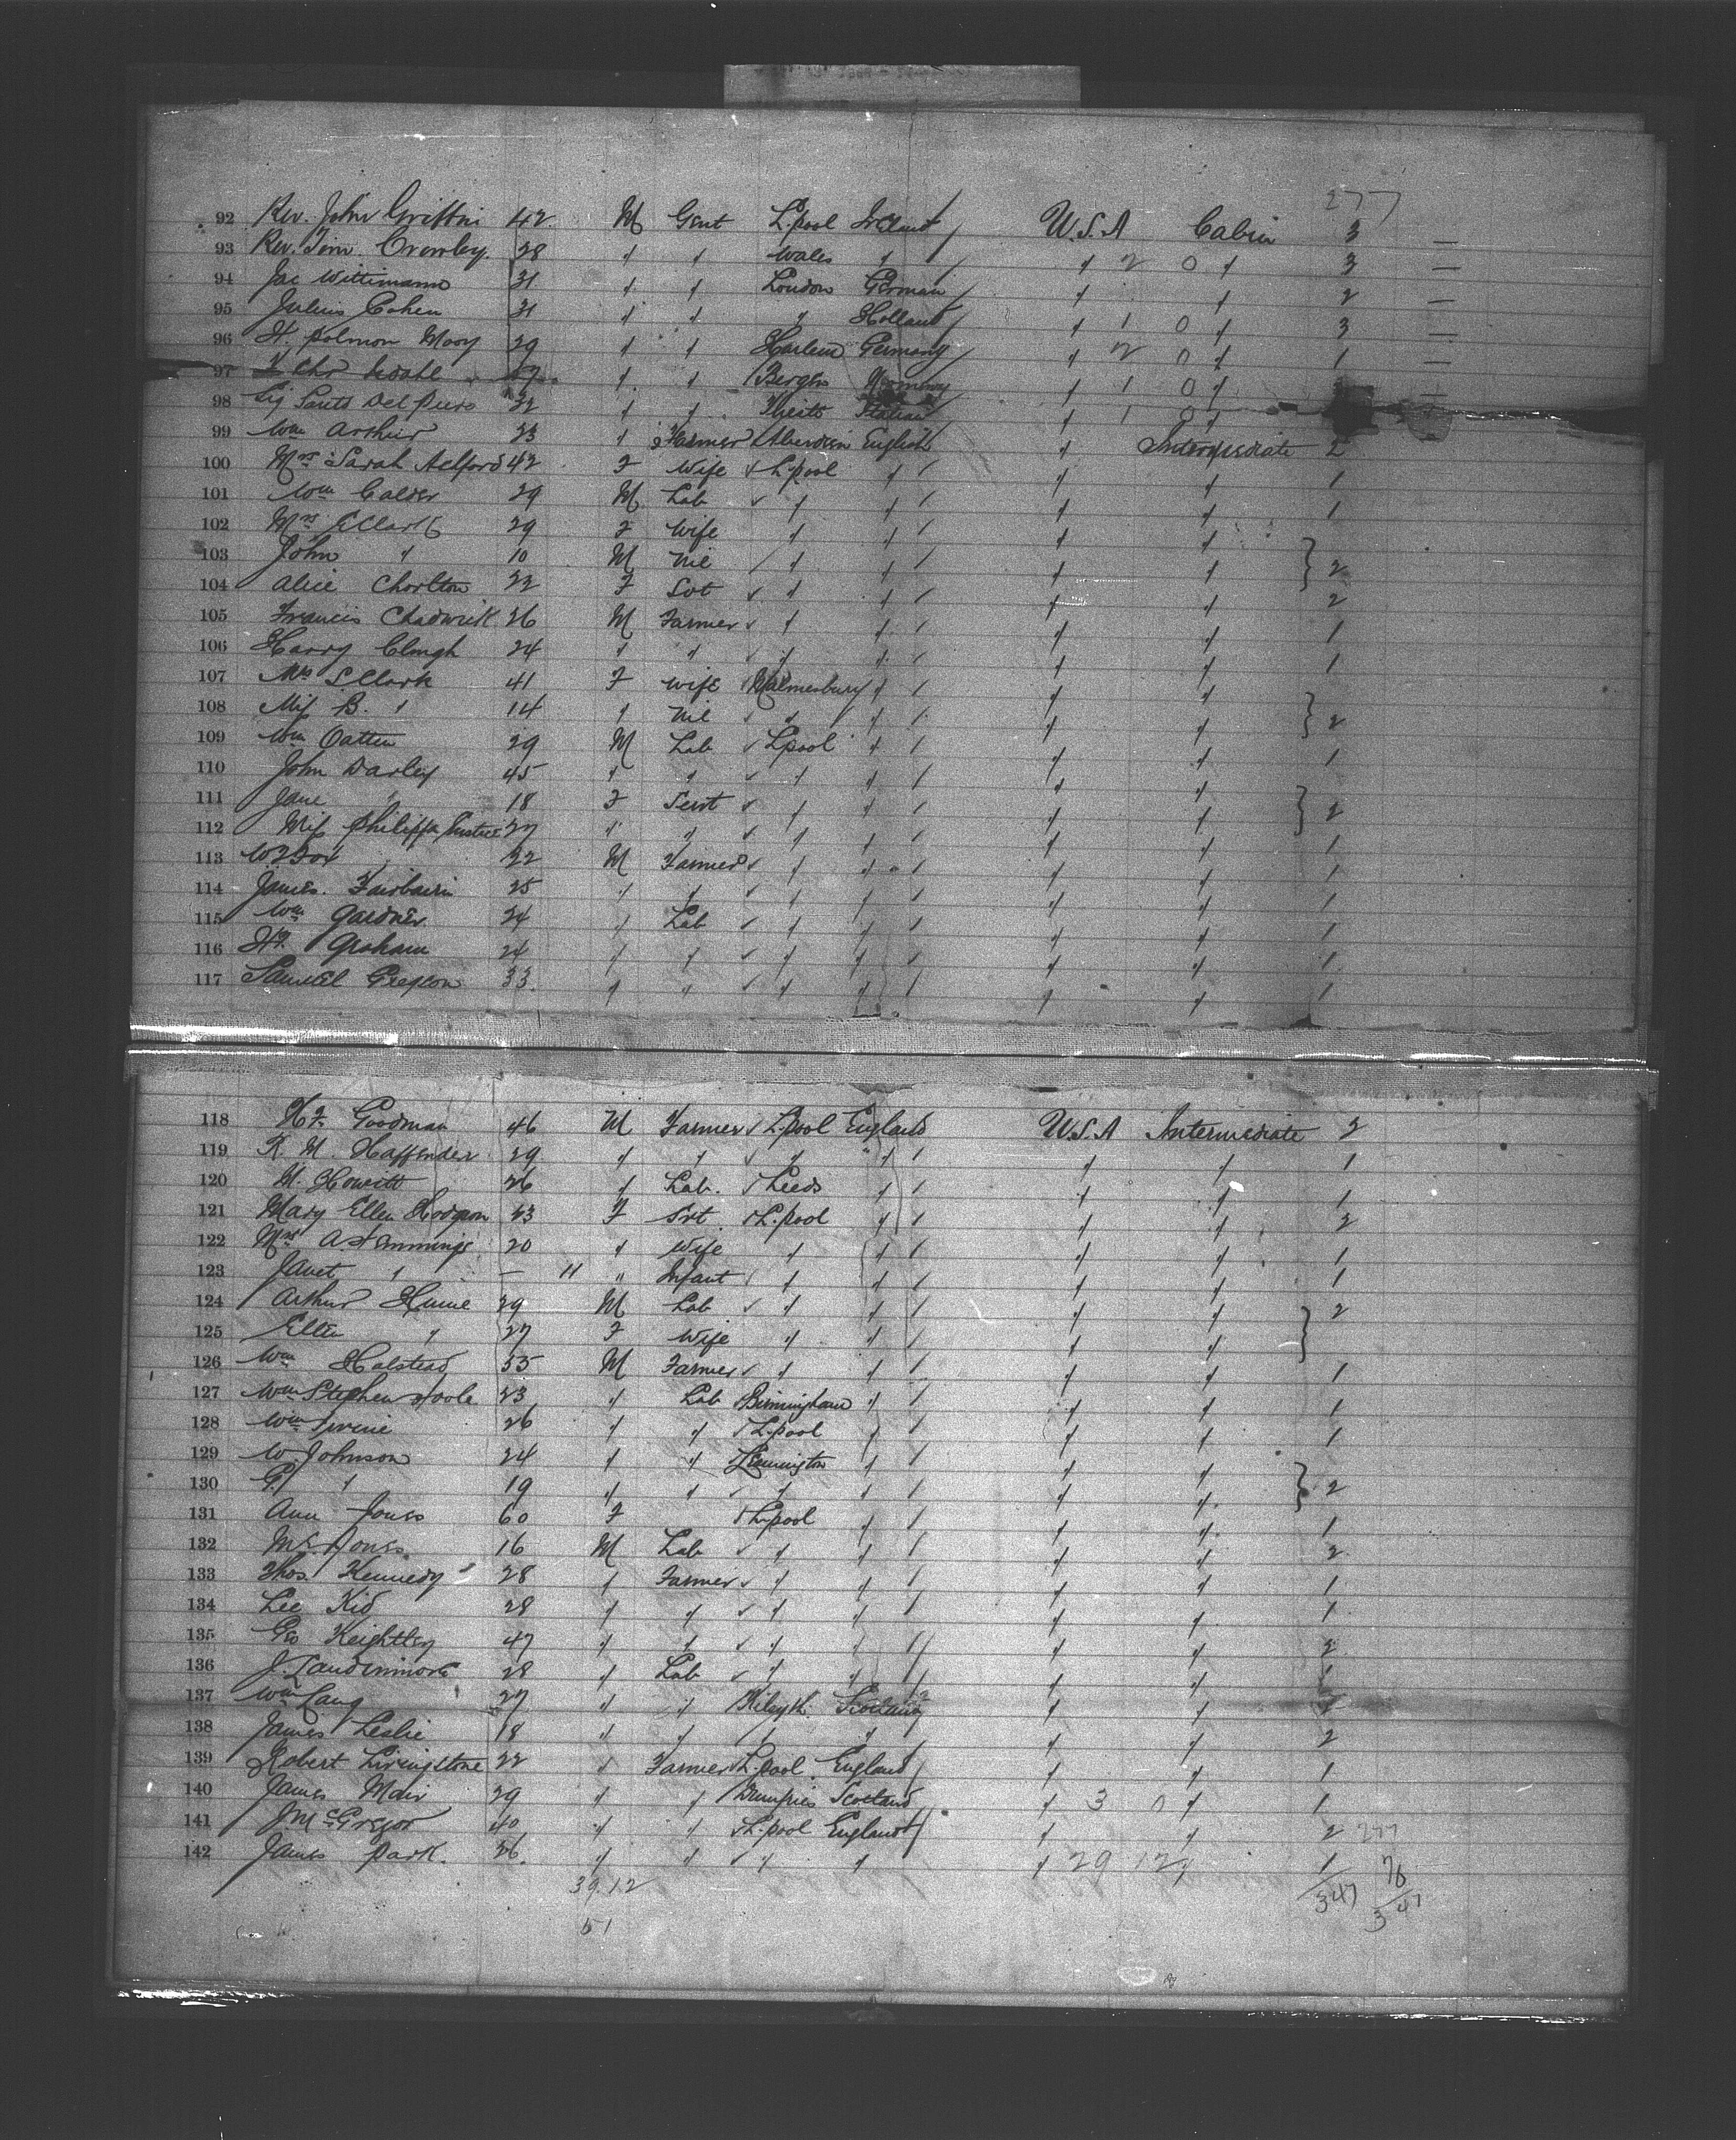 277
92 Rev. John Griffin 42 M Gent L.pool Ireland U.S.A Cabin 3 —
93 Rev. Tim. Crowley. 28 " " Wales " " 2 0 " 3 —
94 Jac Wittimann 31 " " London German " " 2 —
95 Julius Cohen 31 " " " Holland " 1 0 " 3 —
96 H. Solmon Mooy 29 " " Harlem Germany " 2 0 " 1 —
97 Chr Wdahl " " Bergen Norway " 1 0 "
98 Sig Santo Del Piero 32 " " Italian " 1 0 "
99 Wm Arthur 33 " Farmer Aberdeen English " Intermediate 2
100 Mrs Sarah Aelford 42 F Wife L.pool " " " 1
101 Wm Calder 29 M Lab " " " " 1
102 Mrs E Clark 29 F Wife " " " "
103 John " 10 M Nil " " " " 2
104 Alice Chorlton 22 F Svt " " " " 2
105 Francis Chadwick 26 M Farmer " " " " 1
106 Harry Clough 24 " " " " " " 1
107 Mrs S Clark 41 F Wife Malmesbury " " "
108 Miss B. " 14 " Nil " " " " 2
109 Wm Catten 29 M Lab Lpool " " " 1
110 John Darley 45 " " " " " "
111 Jane " 18 F Servt " " " " 2
112 Miss Philippa Eustice 27 " " " " " " 1
113 W F Fox 22 M Farmer " " " " 1
114 James. Fairbairn 25 " " " " " " 1
115 Wm Gardner 24 " Lab " " " " 1
116 Hy. Graham 24 " " " " " " 1
117 Samuel Gregson 33. " " " " " " 1
118 H F. Goodman 46 M Farmer L.pool England U.S.A Intermediate 2
119 R. M. Haffender 29 " " " " " " 1
120 M. Howitt 26 " Lab. Leeds " " " 1
121 Mary Ellen Hodgson 43 F Svt. L.pool " " " 2
122 Mrs A. Hemmings 20 " Wife " " " " 1
123 Janet " — 11 " Infant " " " " 1
124 Arthur Hume 29 M Lab " " " " 2
125 Ellen " 27 F Wife " " " "
126 Wm Halstead 55 M Farmer " " " " 1
127 Wm Stephen Hoole 23 " Lab Birmingham " " " 1
128 Wm Irvine 26 " " L.pool " " " 1
129 W Johnson 24 " " Leamington " " "
130 G. " 19 " " " " " " 2
131 Ann Jones 60 F L.pool " " " 1
132 Jones 16 M Lab " " " " 2
133 Thos. Kennedy 28 " Farmer " " " " 1
134 Lee Kid 28 " " " " " " 1
135 Geo Keightley 47 " " " " " " 2
136 J. Laudenmore 28 " Lab " " " " 1
137 Wm Lang 27 " " Kilsyth. Scotland " "
138 James Leslie 18 " " " " " " 2
139 Robert Livingstone 22 " Farmer L.pool. England " " 1
140 James Mair 29 " " Dumfries Scotland " 3 0 " 1
141 J. McGregor 40 " " L.pool England " " 2 277
142 James Park. 26. " " " " " 29 12 " 1 76
39.12 347 347
51